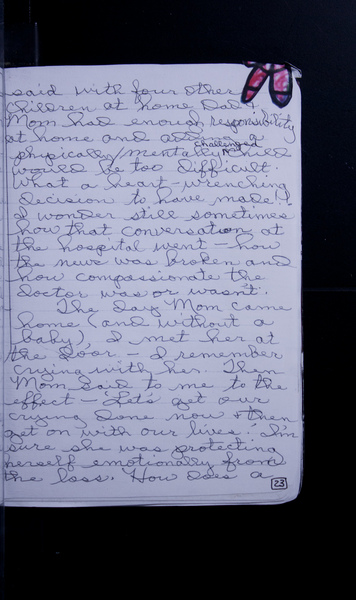 said with four other
children at home Dad &
Mom had enough responsibility
at home and adding a
challenged
physically/mentally ^ child
would be too difficult.
What a heart-wrenching
decision to have made! I
I wonder still sometimes
how that conversation at
the hospital went – how
the news was broken and
how compassionate the
doctor was or wasn't.
The day Mom came
home (and without a
baby), I met her at
the door – I remember
crying with her. Then
Mom said to me to the
effect – "Let's get our
crying done now & then
get on with our lives." I'm
sure she was protecting
herself emotionally from
the loss. How does a
23